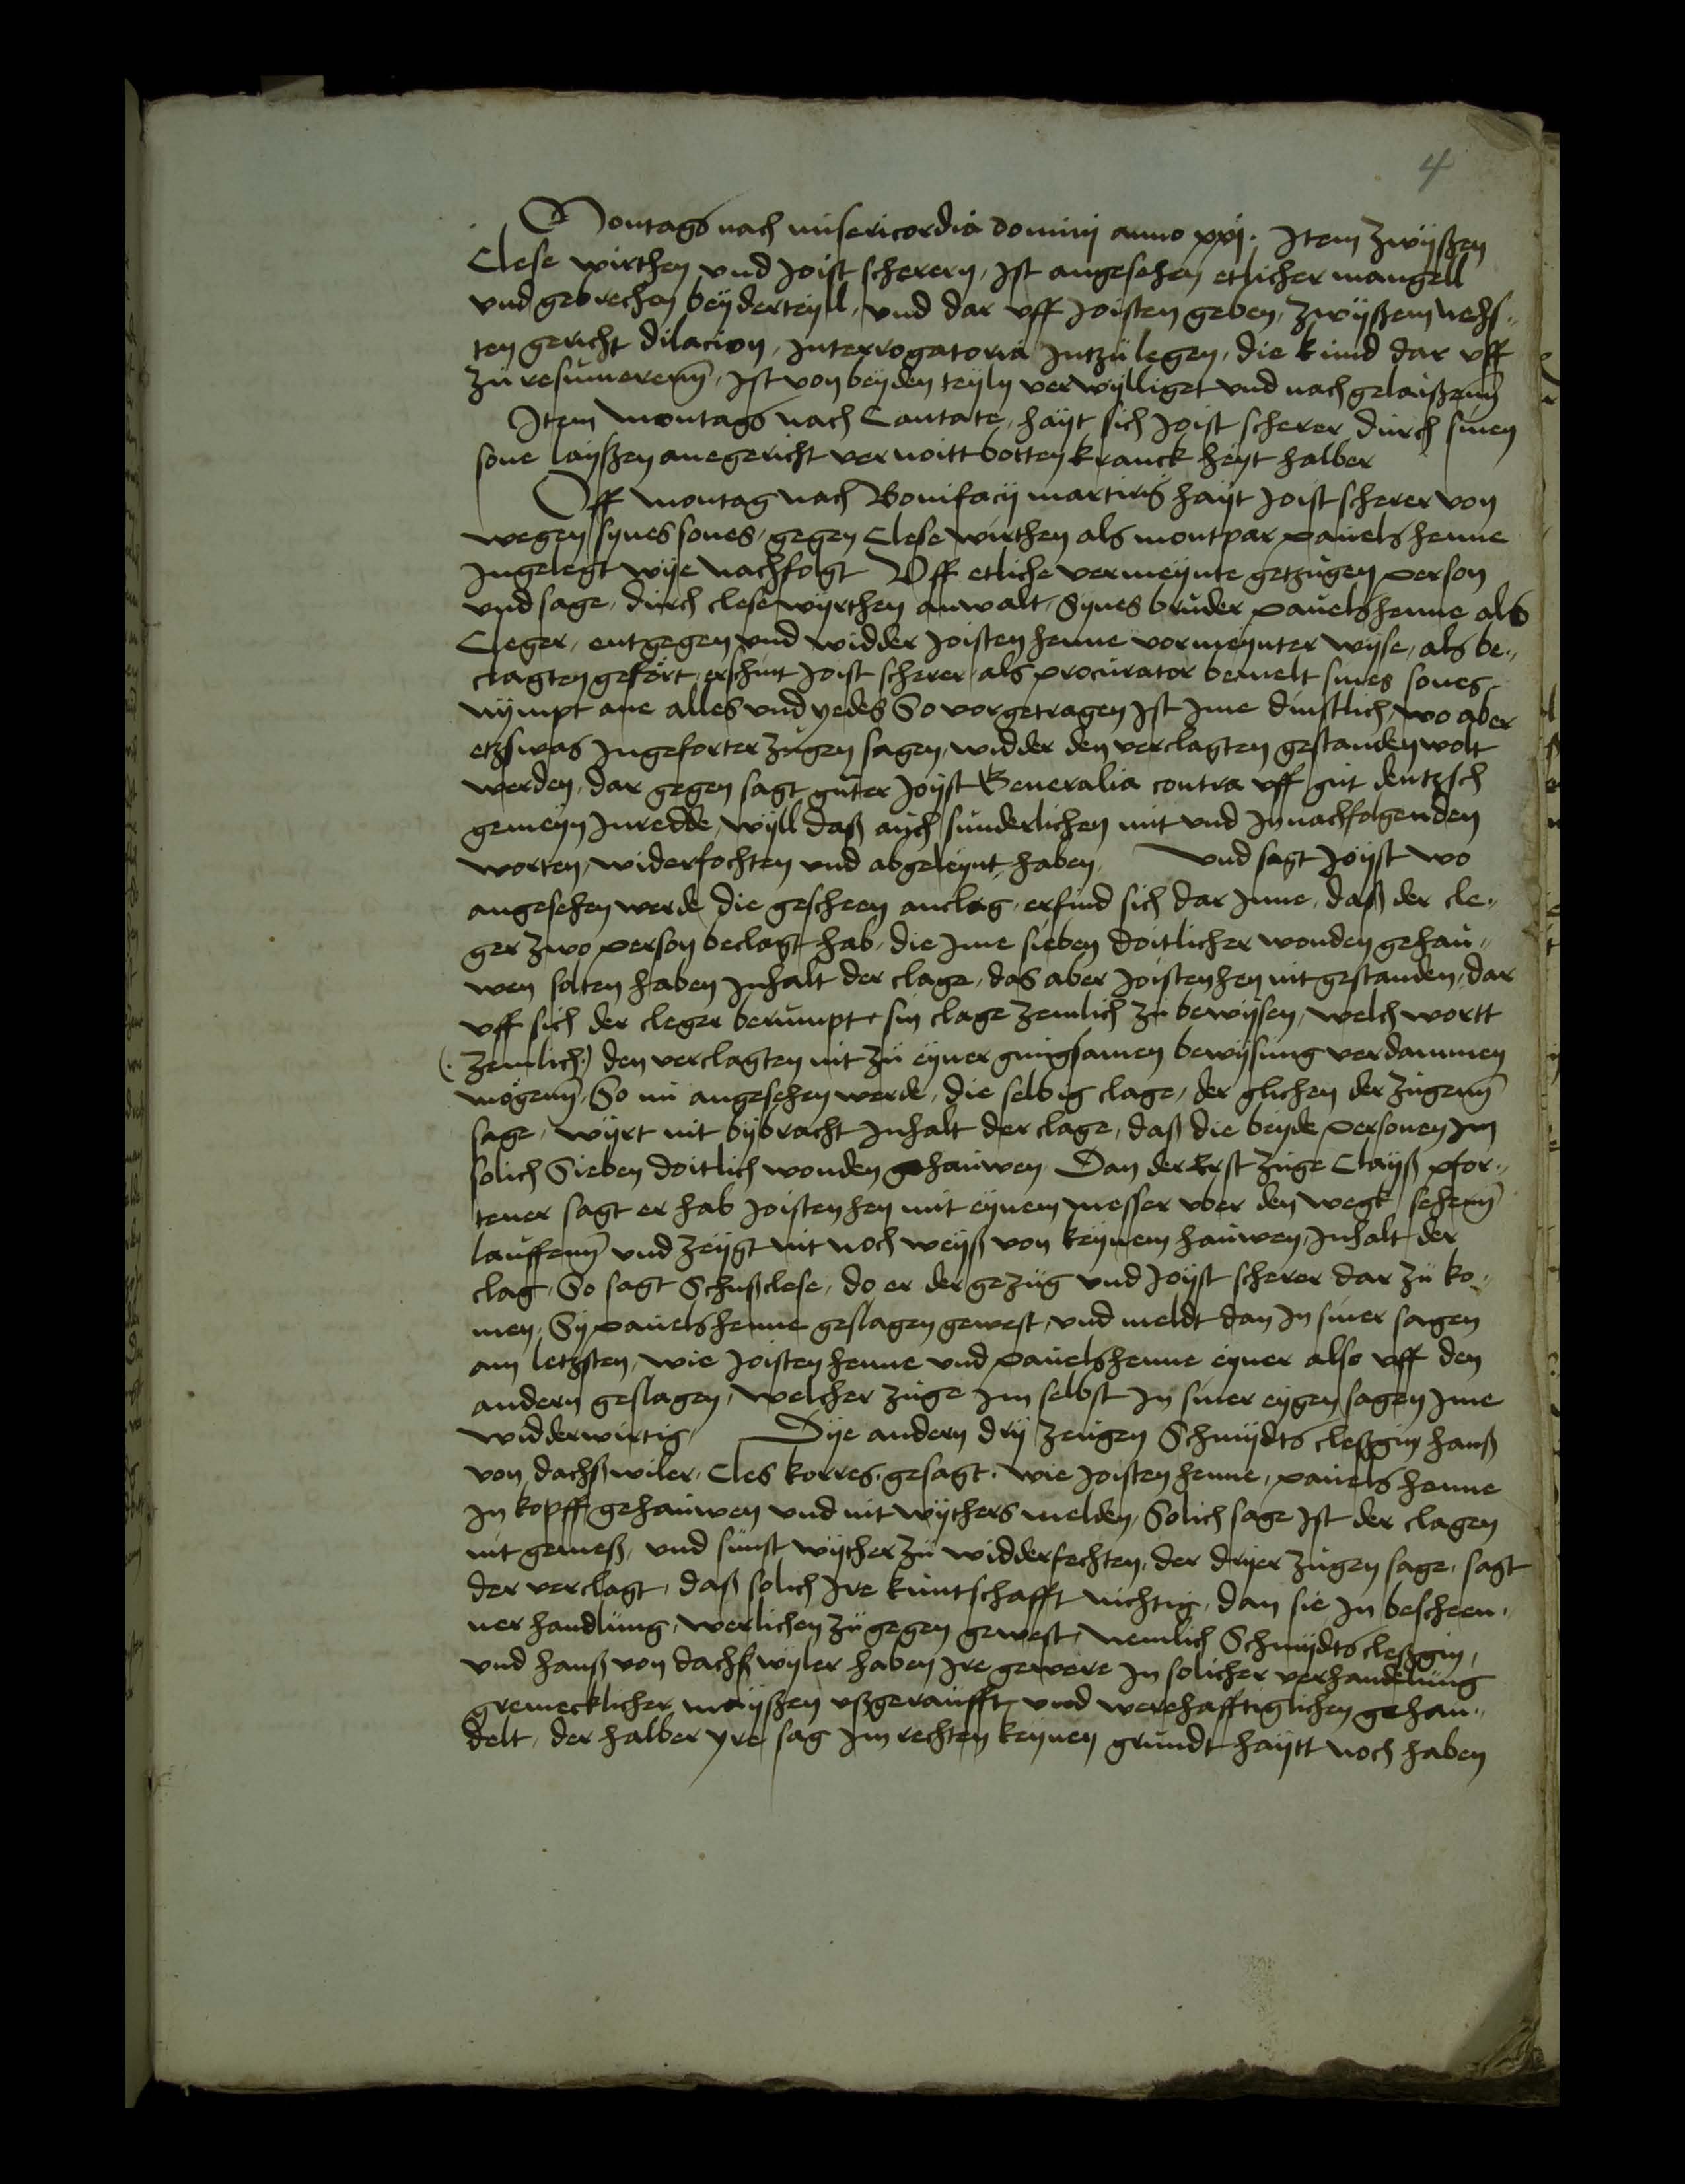 4
Montags nach misericordia domini anno xxj. Item zwyßen
Clese wirthen vnd Joist scherern, Ist angesehen etlicher mangell
vnd gebrechen beyderteyll, vnd dar vff Joisten geben, zwyßem nehs„
ten gericht dilacion, Interrogatoria Intzulegen, die kund dar vff
zu resumerenn, Ist von beyden teyln verwylliget vnd nachgelaißenn
Item montags nach Cantate, hayt sich Joist scherer durch sinen
sone laißen ane gericht vernoittbotten kranckheyt halber
Vff montag nach Bonifacij martiris hayt Joist scherer von
wegen synes sones, gegen Clese wirthen als montpar pauels henne
Ingelegt wye nachfolgt Vff etliche vermeynte getzugen person
vnd sage, durch clese wyrthen anwalt, Synes bruder pauelshenne als
Cleger, entgegen vnd widder Joisten henne vormeynter wyse, als be„
clagten gefört, erschint Joist scherer als procurator bemelt sines sones,
nympt ane alles vnd yedes So vorgetragen Ist Ime dinstlich, wo aber
etzswas Ingeforter zugen sagen, widder den verclagten gestanden wolt
werden, dar gegen sagt guter Joyst Generalia contra vff gut deutzsch
gemeyn Inredde, wyll daß auch sunderlichen mit vnd In nachfolgenden
worten, widerfochten vnd abgeleynt haben, vnd sagt Joyst wo
angesehen werde die gescheen anclag, erfind sich dar Inne, daß der cle„
ger zwo person beclagt hab, die Ime sieben doitlicher wonden gehau„
wen solten haben Inhalt der clage, das aber Joistenhen nit gestanden, dar
vff sich der cleger berumpt, sin clage zemlich zu bewysen, welch wortt
(zemlich) den verclagten nit zu eyner gnugsamen bewysung verdammen
mögenn, So nu angesehen werde, die selbig clage, der glichen der zugenn
sage, wyrt nit bybracht Inhalt der clage, daß die beyde personen Im
solich Sieben doitlich wonden gehauwen, Dan der Erst zuge Clayß pfor„
tener sagt er hab Joistenhen mit eynem messer vber den wegk sehenn
lauffenn vnd zeygt nit noch weyß von keynem hauwen, Inhalt der
clag, So sagt Schußclese, do er der gezug vnd Joyst scherer dar zu ko„
men, Sy pauelshenne geslagen gewest, vnd meldt dan In siner sagen
am letzsten, wie Joisten henne vnd pauelshenne eyner also vff den
andern geslagen, welcher zuge Im selbst In siner eygen sagen Ime
widderwirtig, Dye andern dry zeugen Schmydts cleßgin hanß
von dachßwiler, Cles korres, gesagt, wie Joisten henne, pauels henne
In kopff gehauwen vnd nit wythers melden, Solich sage Ist der clagen
nit gemeß, vnd sunst wyther zu widderfechten, der dryer zugen sage, sagt
der verclagt, daß solich Ire kuntschafft nichtig, dan sie In bescheen„
ner handlung, werlichen zugegen gewest, nemlich Schmydts cleßgin,
vnd hanß von dachßwyler haben Ire gewere In solicher verhandelung
gremecklicher mayßen vßgeraufft, vnd werehafftiglichen gehan„
delt, der halber yre sag Im rechten keynen grundt haytt noch haben